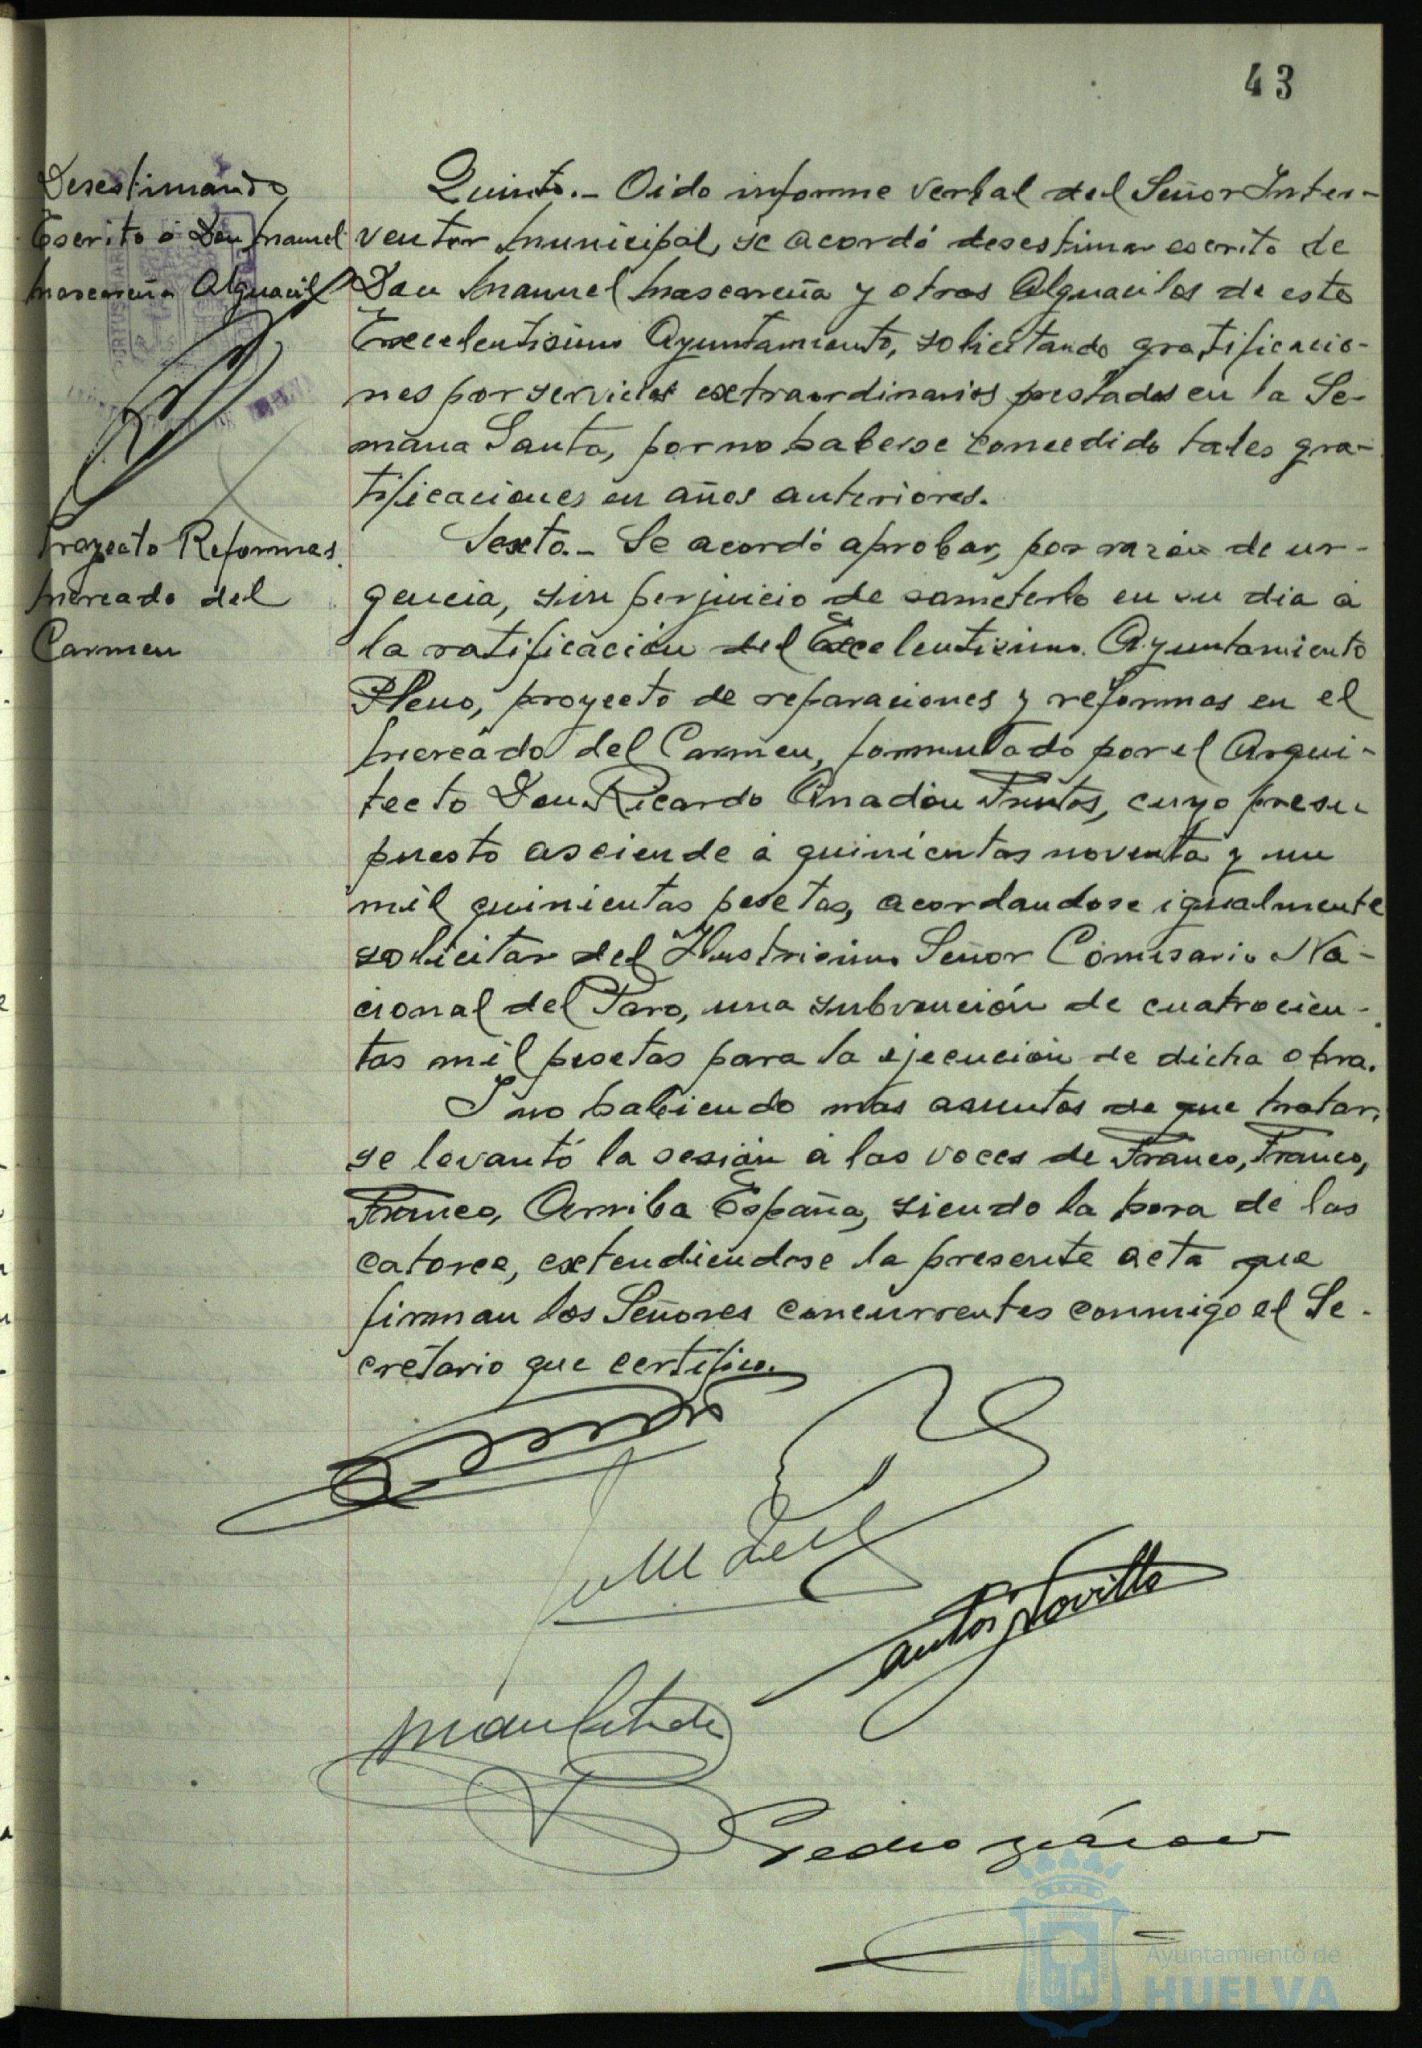 43
Desestimando
Escrito a Don Manuel
Mascareña Alguacil
Quinto.- Oido informe verbal del Señor Inter-
ventor Municipal, se acordó desestimar escrito de
Don Manuel Mascareña y otros Alguaciles de este
Excelentisimo Ayuntamiento, solicitando gratificacio-
nes por servicios extraordinarios prestados en la Se-
mana Santa, por no haberse concedido tales gra-
tificaciones en años anteriores.
Proyecto Reformas
Mercado del
Carmen
Sexto.- Se acordó aprobar, por razón de ur-
gencia, sin perjuicio de someterlo en su dia a
la ratificación del Excelentisimo Ayuntamiento
Pleno, proyecto de reparaciones y reformas en el
Mercado del Carmen, formulado por el Arqui-
tecto Don Ricardo Anadón Frutos, cuyo presu
puesto asciende a quinientas noventa y un
mil quinientas pesetas, acordandose igualmente
solicitar del Ilustrisimo Señor Comisario Na-
cional del Paro, una subvención de cuatrocien-
tas mil pesetas para la ejecución de dicha obra.
Y no habiendo mas asuntos de que tratar,
se levantó la sesión a las voces de Franco, Franco,
Franco, Arriba España, siendo la hora de las
catorce, extendiendose la presente acta que
firman los Señores concurrentes conmigo el Se-
cretario que certifico.
Antº Novillo
Pedro
Ayuntamiento de
HUELVA